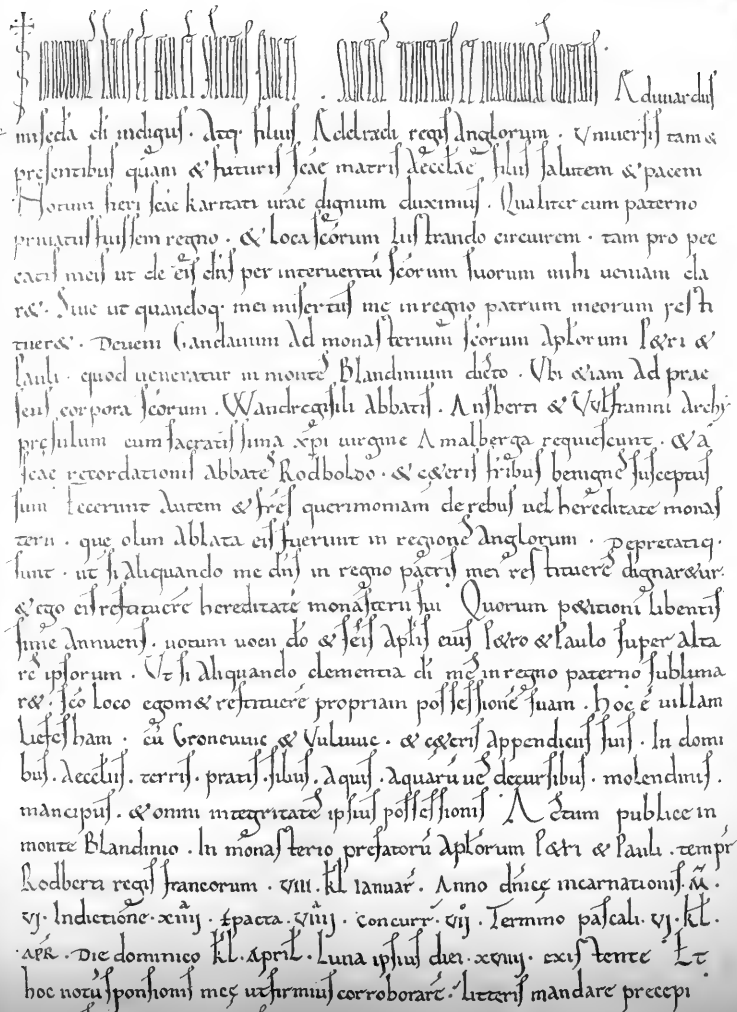 SANCTI . SANCTE TRINITATIS ET INDIVIDUE UNITATIS . Aduuardus
miseđa đi indigus . Atq; filius Adelradi regis Anglorum . Vniuersis tam &
presentibus quā & futuris scāe matris aecclāe filiis salutem & pacem
Notum fieri scāe karitati urāe dignum duximus . Qualiter cum paterno
priuatus fuissem regno . & loca scōrum lustrando circuirem . tam pro pec
catis meis ut de eis dn̄s per interuentū scōrum suorum mihi ueniam da
r& . Siue ut quandoq; mei misertus me in regno patrum meorum resti
tuer& . Deueni Gandauum Ad monasteriū scōrum Aplōrum P&ri &
Pauli . quod ueneratur in monte Blandinium dicto . Vbi &iam Ad prae
sens corpora scōrum . Wandregisili abbatis . Ansberti & Vulframni archi
presulum cum sacratissima xp̄i uirgine Amalberga requiescunt . & a
scāe recordationis abbate Rodboldo . & c&eris fribus benigne susceptus
sum fecerunt autem & frēs querimoniam de rebus uel hereditate monas
terii . que olim ablata eis fuerunt in regione Anglorum . Depretatiq;
sunt . ut si aliquando me dn̄s in regno patris mei restituere dignar&ur .
& ego eis restituere hereditatē monasterii sui Quorum p&itioni libentis
sime annuens . uotum uoui dō & scīs aplīs eius P&ro & Paulo super alta
re ipsorum . Vt si aliquando clementia đi me in regno paterno sublima
r& . scō loco egom& restituere propriam possessionē suam . hoc ē uillam
liefesham . cū Groneuuic & Vuluuic . & c&eris appendiciis suis . In domi
bus . Aecclīis . terris . pratis . siluis . aquis . aquarūue decursibus . molendinis .
mancipiis . & omni integritate ipsius possessionis Actum publice in
monte Blandinio . In monasterio prefatorū Aplōrum P&ri & Pauli . tempr̄
Rodberti regis francorum . viii . kł Ianuar̄ . Anno dn̄icę incarnationis . M̄ .
vi . Indictione . xiiii . Epacta . viiii . Concurr̄ . vii . Termino pascali . vi . kł .
apr̄ . Die dominico kł . April . Luna ipsius diei . xviii . existente Et
hoc notū sponsionis meę ut firmius corroborarē . litteris mandare precepi